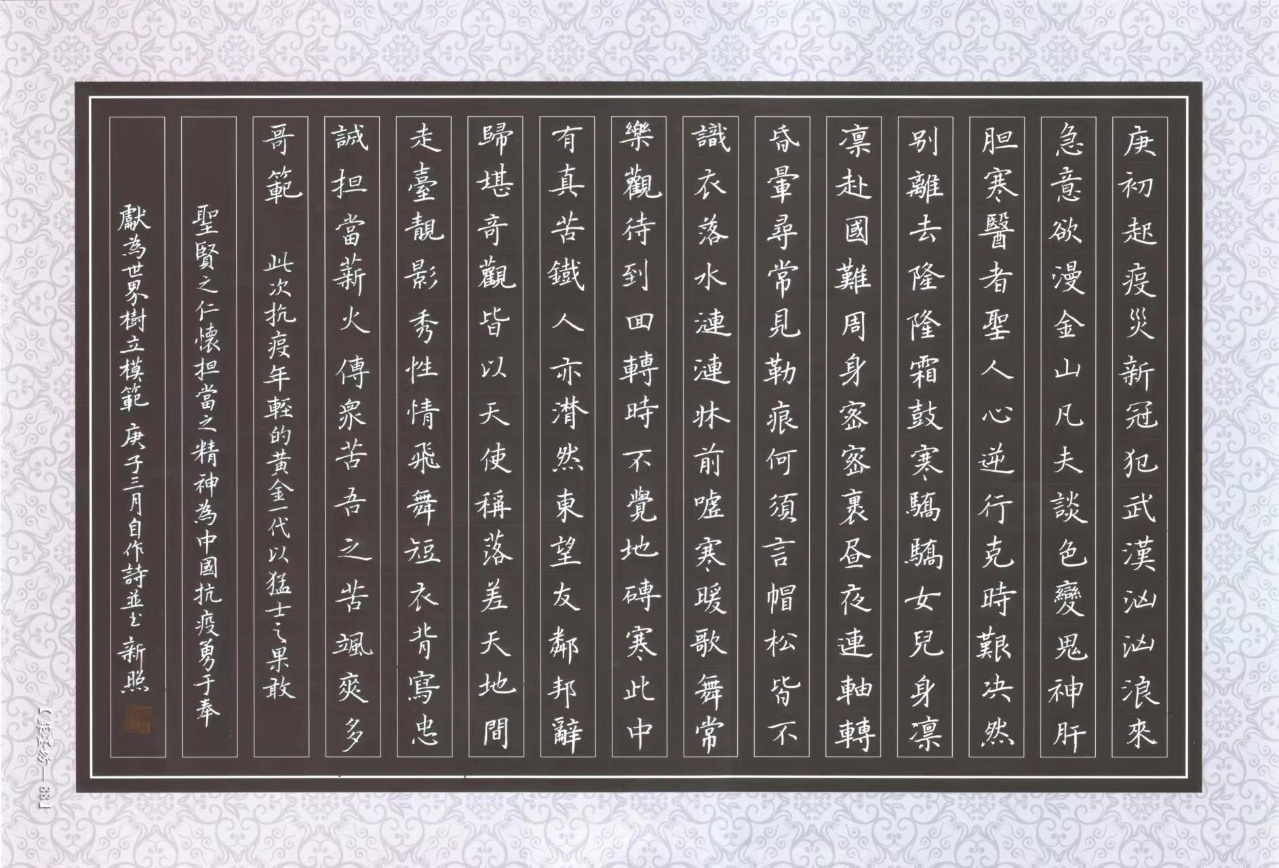 庚初起疫災新冠犯武漢汹汹浪來
急意欲漫金山凡夫談色變鬼神肝
胆寒醫者聖人心逆行克時艱决然
别離去隆隆霜鼓寒驕驕女兒身凛
凛赴國難周身密密裹昼夜連軸轉
昏暈尋常見勒痕何須言帽松皆不
識衣落水漣漣牀前嘘寒暖歌舞常
樂觀待到回轉時不覺地磚寒此中
有真苦鐵人亦潸然東望友鄰邦辭
歸堪哥觀皆以天使稱落差天地間
走臺靚影秀性情飛舞短衣背寫忠
誠担當薪火傳衆苦吾之苦颯爽多
哥範 此次抗疫年輕的黄金一代以猛士之果敢
聖賢之仁懷担當之精神為中國抗疫勇于奉
獻為世界樹立模範 庚子三月自作詩並書 新照